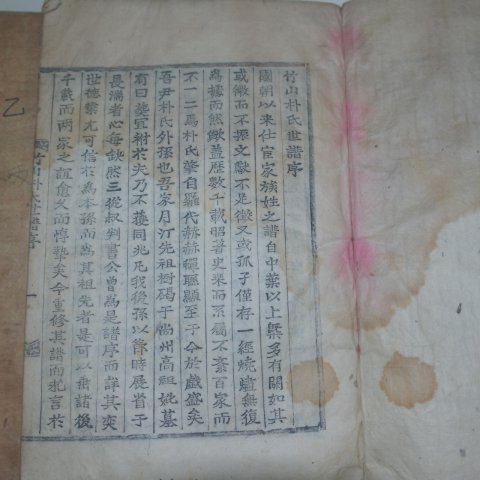 竹山朴氏世譜序
國朝以来仕宦家族姓之譜自中葉以上槩多有闕如其
或微而不振文獻不足徵又或孤子僅存一經燒燼無復
爲據而然歟盖歷數千載昭著史乘而系獨不紊百家而
不一二焉朴氏肇自羅代赫赫蟬聯顯至于今於戲盛矣
吾尹朴氏外孫也吾家月汀先祖樹碣于楊州高祖妣墓
有曰羹軍樹於夫乃不獲同兆凡我後孫以時展省于
長湍者心每缺然三從叔判書公曾爲是譜序而詳其奕
世德業尤可信於爲本孫而爲其祖先者是可以有諸後
千載而兩家之誼愈久而惇摯矣今重修其譜而求言於
竹山朴氏世譜序
一
乙